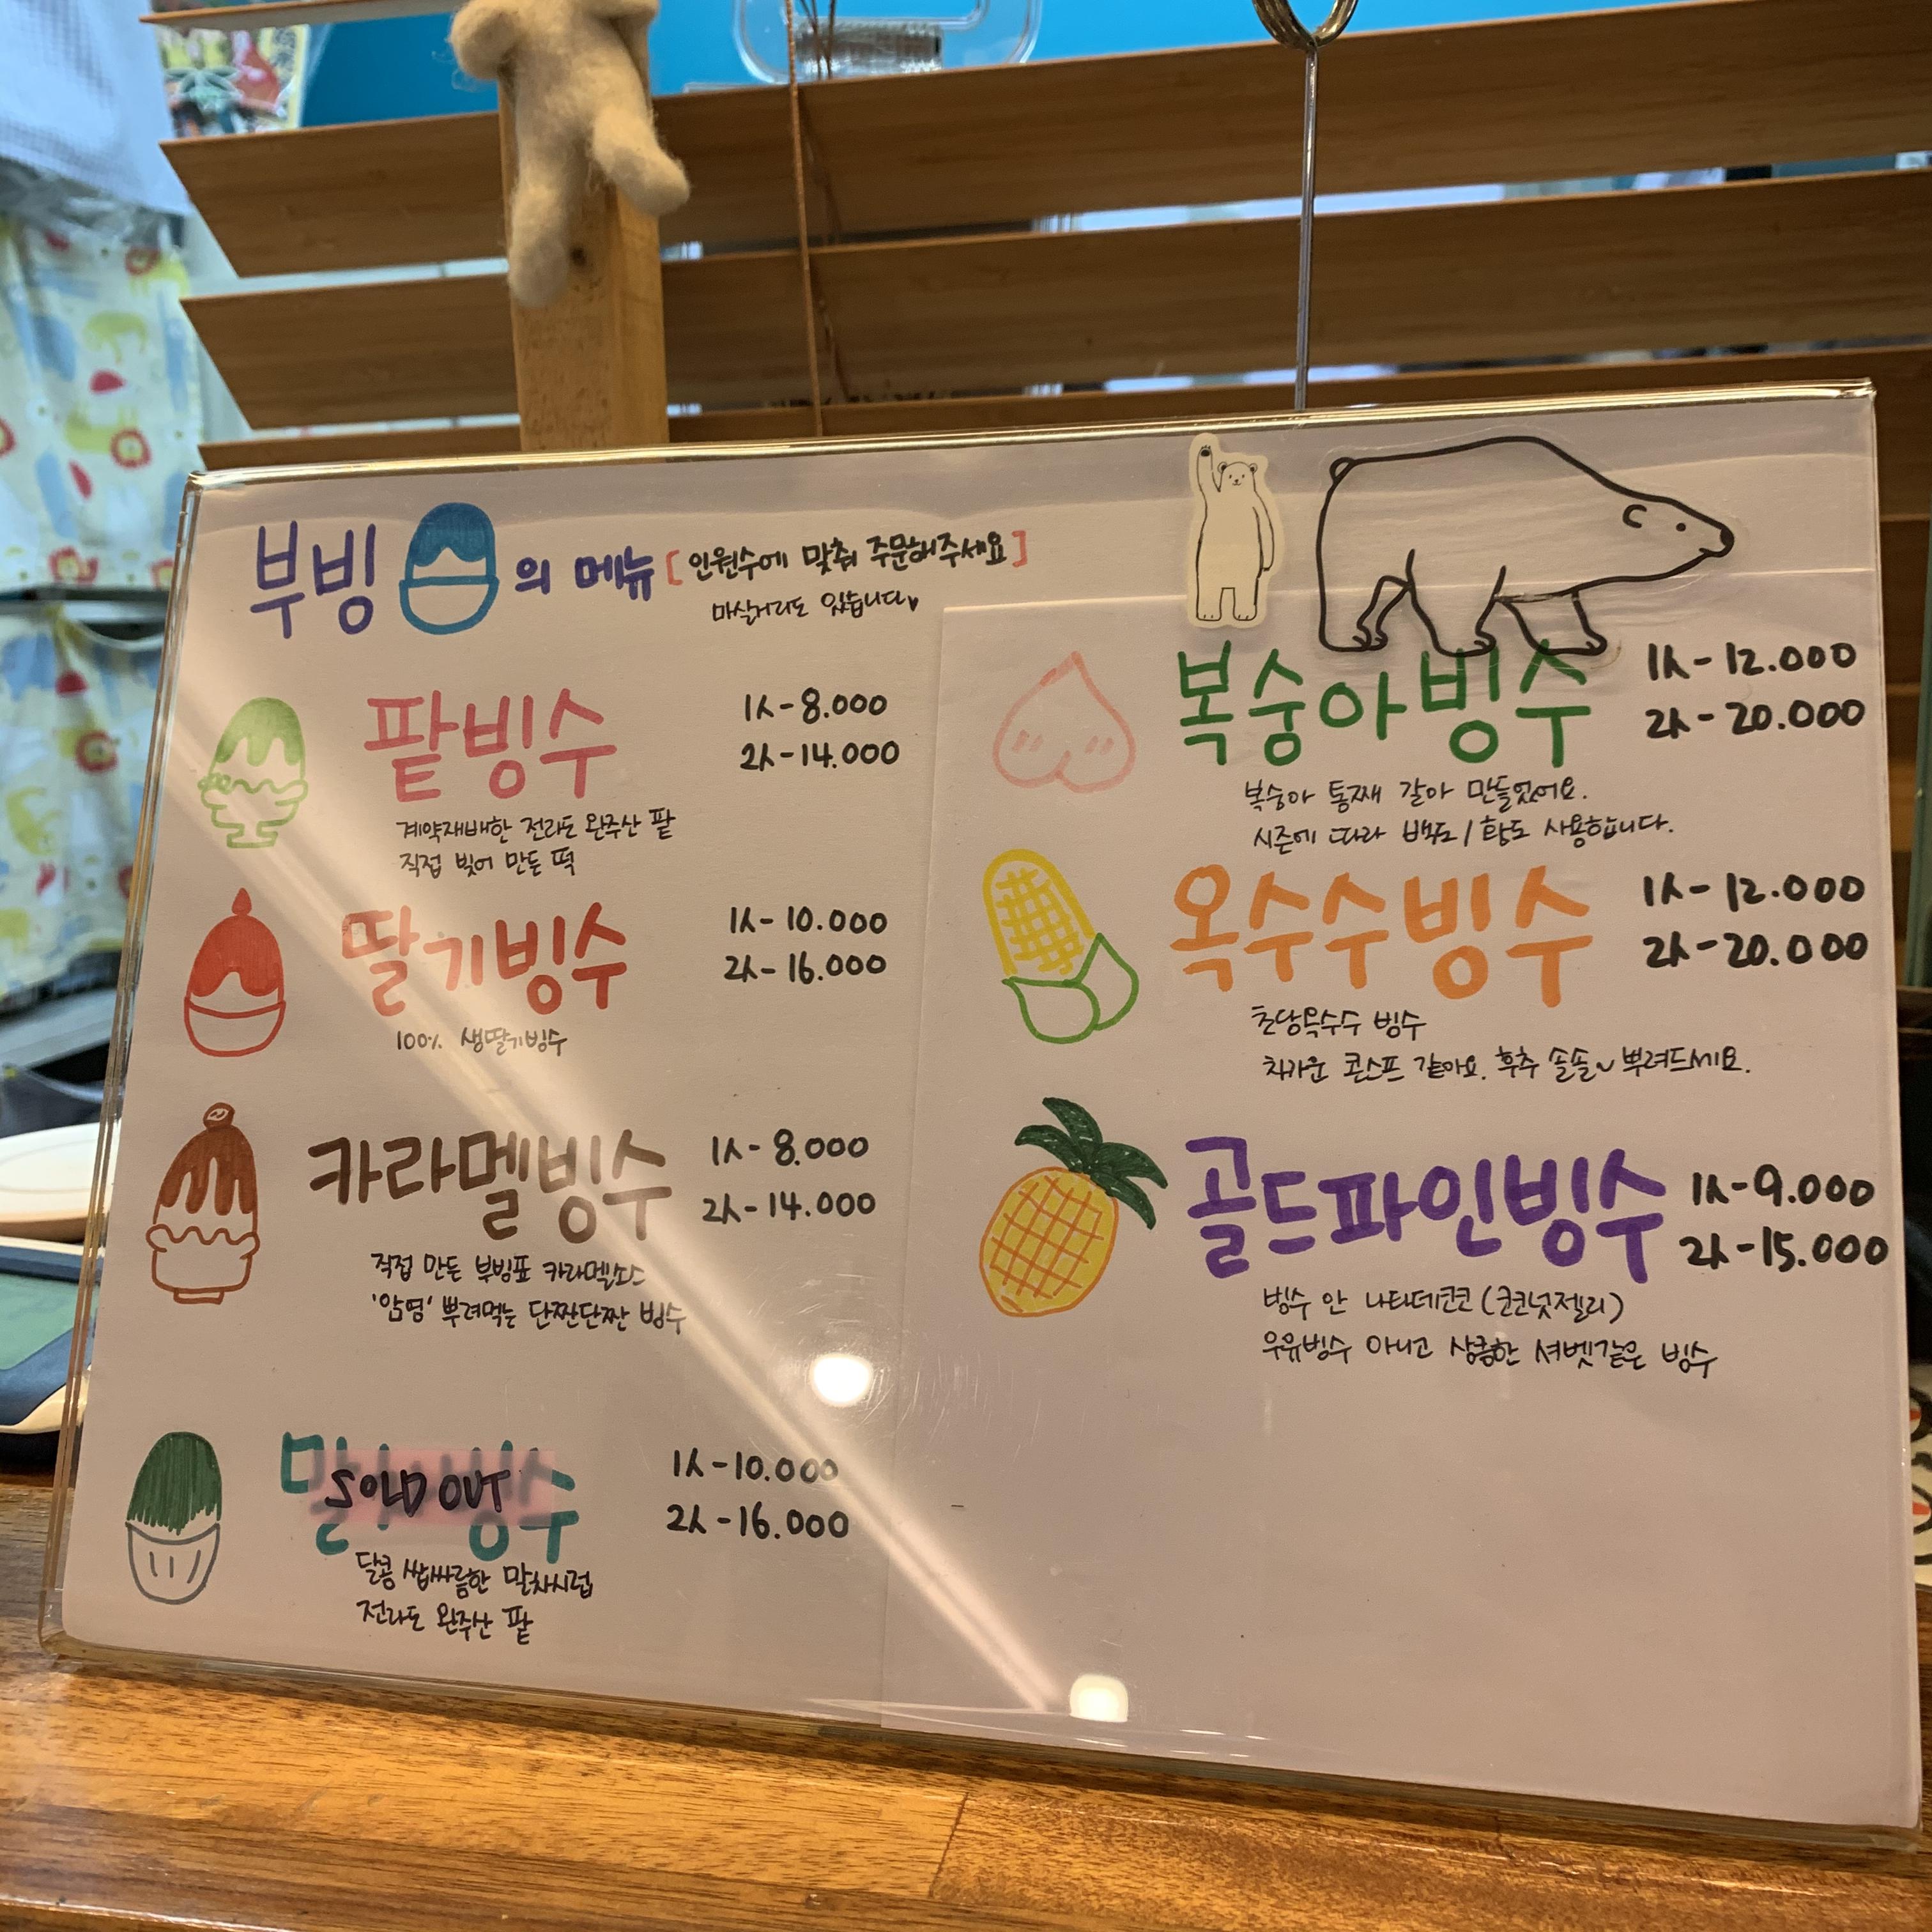 부빙의 메뉴 [인원수에 맞춰 주문해주세요]
마실거리도 있습니다♥
팥빙수
1人-8.000
2人-14.000
계약재배한 전라도 완주산 팥
직접 빚어 만든 떡
딸기빙수
1人-10.000
2人-16.000
100% 생딸기빙수
카라멜빙수
1人-8.000
2人-14.000
직접 만든 부빙표 카라멜소스
'암염' 뿌려먹는 단짠단짠 빙수
말차빙수
SOLD OUT
1人-10.000
2人-16.000
달콤 쌉싸름한 말차시럽
전라도 완주산 팥
복숭아빙수
1人-12.000
2人-20.000
복숭아 통째 갈아 만들었어요.
시즌에 따라 백도/황도 사용합니다.
옥수수빙수
1人-12.000
2人-20.000
초당옥수수 빙수
차가운 콘스프 같아요. 후추 솔솔~ 뿌려드세요.
골드파인빙수
1人-9.000
2人-15.000
빙수 안 나타데코코(코코넛젤리)
우유빙수 아니고 상큼한 셔벗같은 빙수